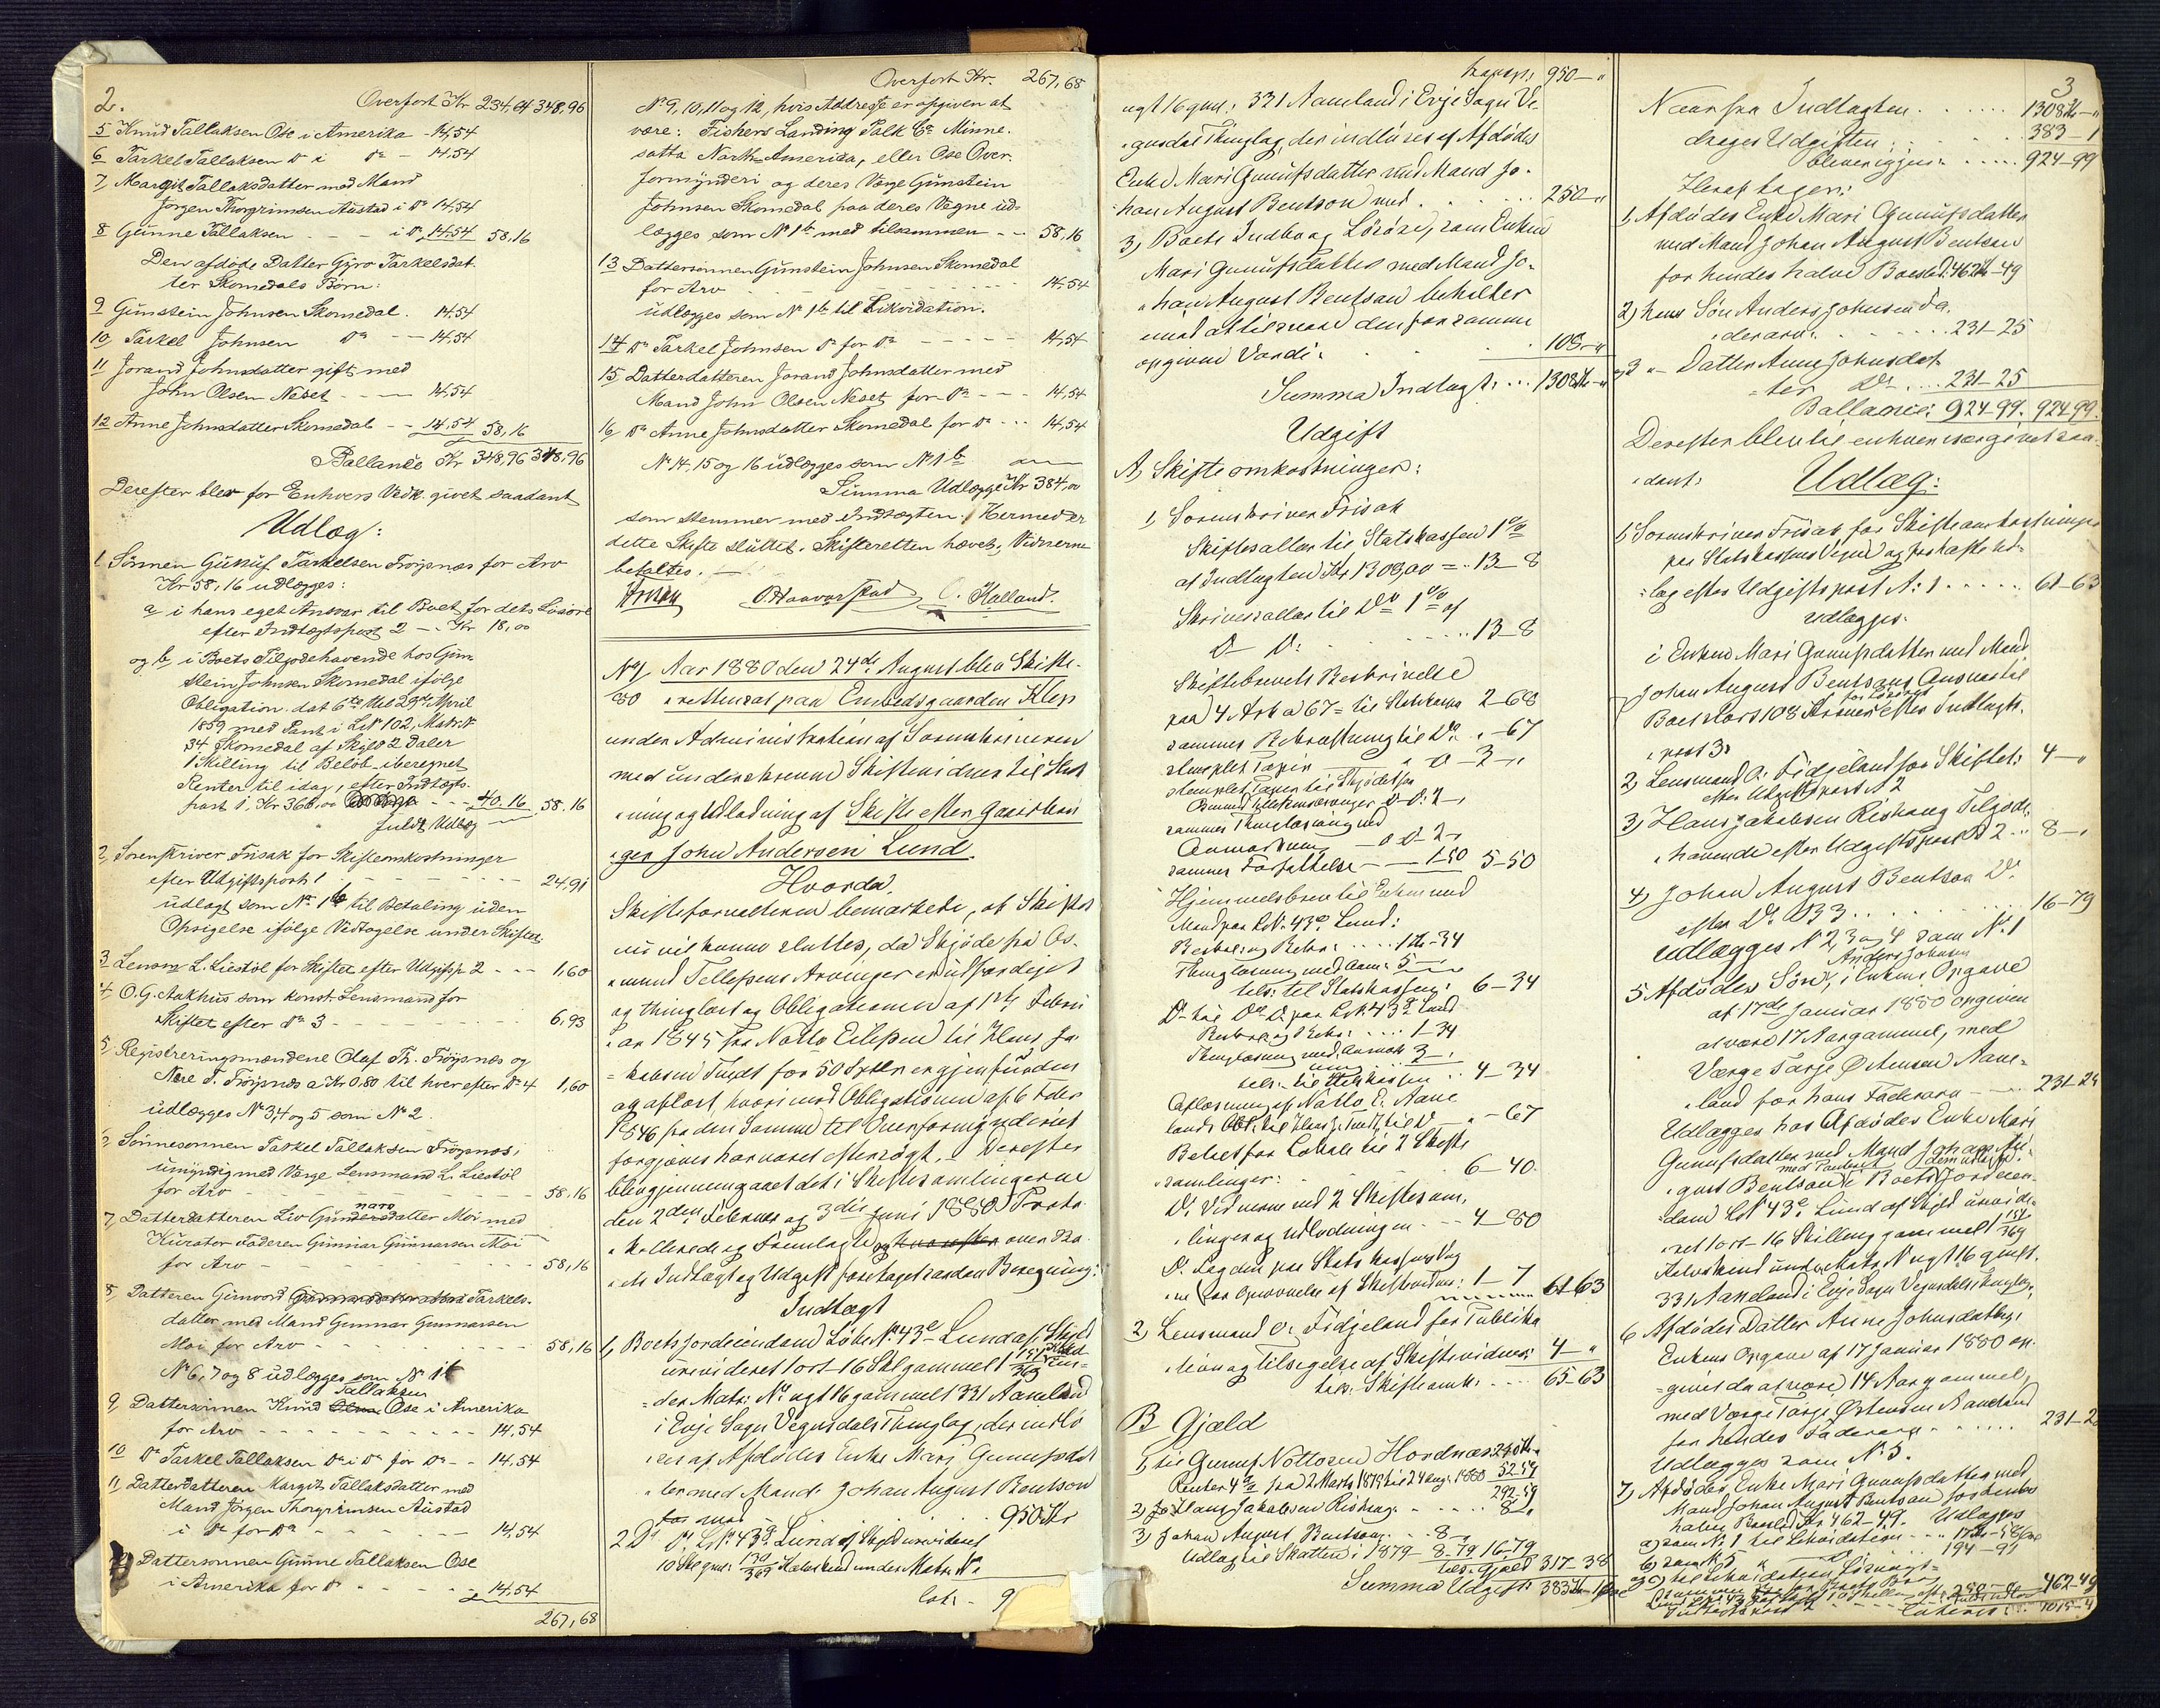 2.
Overført Kr 234,64 348,96
5 Knud Tallaksen Ose i Amerika - 14,54
6 Tarkel Tallaksen Do i do - 14,54
7, Margit Tallaksdatter med Mand
Jørgen Thorgrimsen Austad i Do 14,54
8 Gunne Tallaksen - - - i Do 14,54 58,16
Den afdøde Datter Gyro Tarkelsdat-
ter Skomedals Børn:
9 Gunstein Johnsen Skomedal. 14,54
10, Tarkel Johnsen Do - - 14,54
11 Jorand Johnsdatter gift med
John Olsen Neset - - - 14,54
12 Anne Johnsdatter Skomedal - - 14,54 58,16
Ballance Kr 348,96 348,96
Derefter blev for Enhvers Vedk. givet saadant
Udlæg:
1 Sønnen Gunuf Tarkelsen Frøysnæs for Arv
Kr 58,16 udlægges:
a i hans eget Ansvar til Boet for dets Løsøre
efter Indtægtspost 2 - Kr 18,00
og b, i Boets Tilgodehavende hos Gun-
stein Johnsen Skomedal ifølge
Obligation dat 6te Mai 29de April
1859 med Pant i L.N. 102, Matr. N.
34 Skomedal af Skyld 2 Daler
1 Skilling til Beløb iberegnet
Renter til idag, efter Indtægts-
post 1. Kr 366.00 - - - 40.16, 58,16
fuldt Udlæg
2, Sorenskriver Frisak for Skifteomkostninger
efter Udgiftspost 1 - - - 24,91
udlagt som No 1 b til Betaling uden
Opsigelse ifølge Vedtagelse under Skiftet.
3 Lensm L. Liestøl for Skiftet efter Udgiftsp 2 - - - 1,60
4 O. G. Aakhus som konst. Lensmand for
Skiftet efter do 3 - - - 6,93
5, Registreringsmændene Olaf Th. Frøysnæs og
Nere T. Frøysnæs a Kr 0.80 til hver efter Do 4 1,60
udlægges No 3,4 og 5 som No 2.
6, Sønnesønnen Tarkel Tallaksen Frøysnæs,
umyndig med Værge Lensmand L. Liestøl
for Arv - - - 58,16
7, Datterdatteren Liv Gunnarsdatter Moi med
Kurator Faderen Gunnar Gunnarsen Moi
for Arv - - - 58,16
8, Datteren Gunvord Tarkels-
datter med Mand Gunnar Gunnarsen
Moi for Arv - - - 58,16
No 6, 7 og 8 udlægges som No 1 b
9, Dattersønnen Knud Tallaksen Ose i Amerika
for Arv - - - 14,54
10 Do Tarkel Tallaksen Do i Do for Do - - 14,54
11, Datterdatteren Margit Tallaksdatter med
Mand Jørgen Thorgrimsen Austad
i Do for Do - - - 14,54
12 Dattersønnen Gunne Tallaksen Ose
i Amerika for do - - - 14,54
267,68
Overført Kr. 267,68
No 9, 10, 11 og 12, hvis Addresse er opgiven at
være: Fishers Landing Polk Co Minne-
sotta North-Amerika, eller Ose Over-
formynderi og deres Værge Gunstein
Johnsen Skomedal paa deres Vegne ud-
lægges som No 1 b med tilsammen - - 58,16
13 Dattersønnen Gunstein Johnsen Skomedal
for Arv - - - 14,54
udlægges som No 1 b til Likvidation.
14 Do Tarkel Johnsen Do for Do - - - 14,54
15 Datterdatteren Jorand Johnsdatter med
Mand John Olsen Neset for Do - - - 14,54
16 Do Anne Johnsdatter Skomedal for Do - - - 14,54
No 14, 15 og 16 udlægges som No 1 b
Summa Udlægge Kr 384,00
som stemmer med Indtægten. Hermed er
dette Skifte sluttet. Skifteretten hævet, Vidnerne
betaltes.
Frisak O. Haavorstad O. Kalland.
No 1/80 Aar 1880 den 24de August blev Skifte-
retten sat paa Embedsgaarden Klep
under Administration af Sorenskriveren
med underskrevne Skiftevidner til Slut-
ning og Udlodning af Skifte efter Gaardbru-
ger John Andersen Lund.
Hvorda.
Skifteforvalteren bemærkede, at Skiftet
nu vil kunne sluttes, da Skjøde fra Os-
mund Tellefsens Arvinger er udfærdiget
og thinglæst og Obligationen af 1ste Febru-
ar 1845 fra Notto Eilefsen til Hans Ja-
kobsen Tveit for 50 Spdlr er gjenfunden
og aflæst, hvorimod Obligationen af 6 Febr
1846 fra den Samme til Overformynderiet
forgjæves har været eftersøgt. - Derefter
blev gjennemgaaet det i Skiftesamlingerne
den 2den Februar og 3die Juni 1880 Proto-
kollerede og Fremlagte over Bo-
ets Indtægt og Udgift foretaget saadan Beregning:
Indtægt
1, Boets Jordeiendom Løbe N. 43c Lund af Skyld
urevideret 1 ort 16 Sk gammel
der Matr: No ugt 16 gammelt 331 Aamland
i Evje Sogn Vegusdals Thinglag, der indlø-
ses af Afdødes Enke Mari Gunufsdat-
ter med Mand Johan August Bentson
for med . . . 950 Kr
2 Do Do L.N. 43d Lund af Skyld urevideret
lats. 9
Transp: 950 - "
ugt 16 gml: 331 Aamland i Evje Sogn Ve-
gusdal Thinglag, der indløses af Afdødes
Enke Mari Gunufsdatter med Mand Jo-
han August Bentson med . . . 250 - "
3, Boets Indbo og Løsøre, som Enken
Mari Gunufsdatter med Mand Jo-
han August Bentson beholder
mod at tilsvare den for samme
opgivne Værdi . . . 108 - "
Summa Indtægt: . . . 1308 Kr - "
Udgift
A, Skifteomkostninger:
1, Sorenskriver Frisak
Skiftesallær til Statskassen 1 %
af Indtægten Kr 1308,00 = . . 13 - 8
Skriversallær til Do 1 % af
Do Do: . . . 13 - 8
Skiftebrevets Beskrivelse
paa 4 Ark a 67 = til Statskassen 2 - 68
sammes Bekræftning til Do. " - 67
stemplet Papir - " - 3 - "
sammes Thinglæsning med
Anmærkning - 2 -
sammes Forfattelse - - 1-50 5-50
Hjemmelsbrev til Enken med
Mand paa L.N. 43c Lund:
Beskr: og Bekr: . . . 1 Kr - 34
Thinglæsning med Anm: 5 -
tils: til Statskassen: 6 - 34
Do til Do Do paa L.N. 43d Lund
Beskr: og Bekr: . . . 1 - 34
Thinglæsning med Anmærk 3 -
tils: til Statskassen . . 4 - 34
Aflæsning af Notto E. Aam-
lands Obl: til Hans J. Tveit til Do " - 67
Beløb for Lokale til 2 Skifte-
samlinger: . . . 6 - 40.
Do Vidnerne ved 2 Skiftesam-
linger og Udlodningen . . - - 4 - 80
for Opnævnelse af Skiftevidner: 1 - 7 61-63
2, Lensmand O. Fidjeland for Publika-
tion og Tilsigelse af Skiftevidner: 4 - "
tils: Skifteomk: . . . 65-63
B Gjæld
1, til Gunuf Nottosen Hordnæs 240 Kr -
Renter 4 % fra 2 Marts 1879 til 24 Aug: 1880
2, Hans Jakobsen Rishaug . . . 8 "
3, Johan August Bentson: . . 8 -
Udlæg til Skatten i 1879 - 8.79 16-79
tils. Gjæld 317 - 38
Summa Udgift: 383 Kr - 1
3
Naar fra Indtægten . . . 1308 Kr - "
drages Udgiften: . . . 383 - 1
bliver igjen: . . . 924-99
Heraf tager:
1, Afdødes Enke Mari Gunufsdatter
med Mand Johan August Bentson
for hendes halve Boeslod: 462 Kr - 49
2) hans Søn Anders Johnsen Fa-
derarv: . . . 231-25
og 3 " - Datter Anne Johnsdat-
ter Do . . . 231-25
Ballance: 924-99. 924 99.
Derefter blev til enhver især givet saa-
dant:
Udlæg:
1, Sorenskriver Frisak for Skifteomkostninger
paa Statskassens Vegne og forhafte Ud-
læg efter Udgiftspost A: 1 . . . 61-63
udlægges.
i Enken Mari Gunufsdatter med Mand
Johan August Bentsons Ansvar til
Boet stort 108 Kroner for Løsøret efter Indtægts-
post 3.
2, Lensmand O. Fidjeland for Skiftet: 4 - "
efter Udgiftspost A 2
3, Hans Jakobsen Rishaug Tilgode-
havende efter Udgiftspost B 2 . . 8 - "
4) Johan August Bentson Do.
efter Do B 3 . . . 16-79
udlægges No 2, 3 og 4 som No 1
5 Afdødes Søn, Anders Johnsen i Enkens Opgave
af 17de Januar 1880 opgiven
at være 17 Aar gammel, med
Værge Tarje Østensen Aam-
land for hans Faderarv - - - 231-25
Udlægges hos Afdødes Enke Mari
Gunufsdatter med Mand Johan Au-
gust Bentson i Boets Jordeien-
dom L.N. 43c Lund af Skyld urevide-
ret 1 ort 16 Skilling gammel
Halvskind under Matr. N. ugt 16 gmlt.
331 Aamland i Evje Sogn Vegusdals Thinglag.
6 Afdødes Datter Anne Johnsdatter,
Enkens Opgave af 17 Januar 1880 op-
givet da at være 14 Aar gammel,
med Værge Tarje Østensen Aamland
for hendes Faderarv . . . 231-2
Udlægges som No 5.
7) Afdødes Enke Mari Gunufsdatter med
Mand Johan August Bentson for hendes
halve Boeslod Kr 462-49. Udlægges
a) som No 1 til Likvidation . . .
b) som No 5 " . . . 194-91
462-49